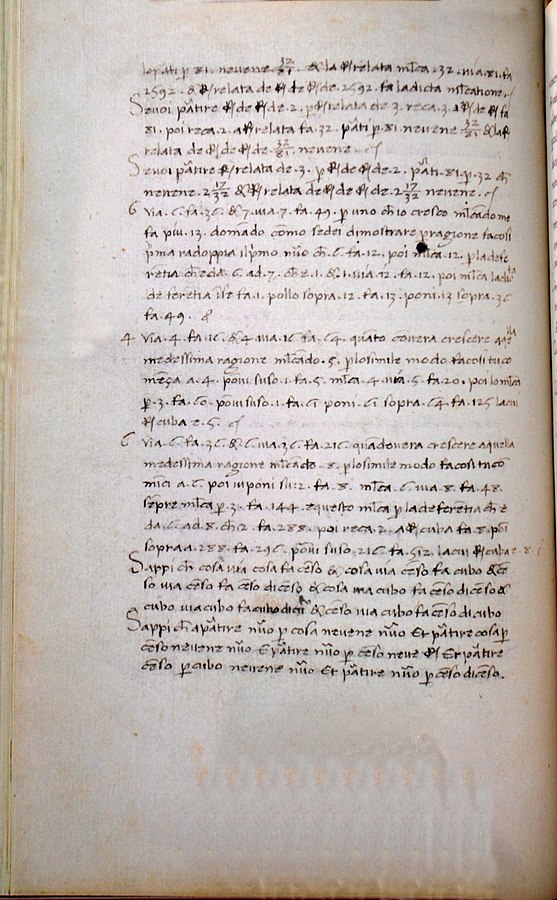 lo parti p 81. nevene 32/81. & la R relata mlca. 32. via. 81. fa
2592. & R relata de R de R de. 2592. fa la dicta mlcatione.
Se voi ptire R de R de. 2. p R relata de. 3. reca. 3. a R de R fa
81. poi reca. 2. a R relata fa. 32. pti p. 81. nevene 32/81 & la R
relata de R de R de. 32/81. nevene.
Se voi ptire R relata de. 3. p R de R de. 2. pti. 81. p. 32 ch
nevene. 2 17/32 & R relata de R de R de. 2 17/32 nevene.
6 via. 6. fa. 36. & 7. via. 7. fa. 49. p uno ch io cresco mlcado me
fa piu. 13. domado como se dei dimostrare p ragione fa cosi
pma radoppia il pmo nuo ch. 6. fa. 12. poi mlca. 12. p la defe
rentia ch e da. 6. ad. 7. ch e. 1. & 1. via. 12. fa. 12. poi mlca la
deferentia i se fa. 1. pollo sopra. 12. fa. 13. poni. 13 sopra. 36
fa. 49.
4 via. 4. fa. 16. & 4. via. 16 fa. 64. quanto covera crescere a qlla
medessima ragione mlcado. 5. p lo simile modo fa cosi tu co
meça a. 4. povi suso. 1. fa. 5. mlca. 4. via. 5. fa. 20. poi lo mlca
p. 3. fa. 60. povi suso. 1. fa. 61 poni. 61 sopra. 64. fa. 125 la cui
R cuba e. 5.
6 via. 6. fa. 36. & 6. via. 36. fa. 216. quado vera crescere a quella
medessima ragione mlcado. 8. p lo simile modo fa cosi tu co
minci a. 6. poi ivi poni su: 2. fa. 8. mlca. 6. via. 8. fa. 48.
sepre mlca p. 3. fa. 144. e questo mlca p la deferentia ch e
da. 6. ad. 8. ch. 2. fa. 288. poi reca. 2. a R cuba fa. 8. poi
sopra a. 288. fa. 296. povi suso. 216. fa. 512. la cui R cuba e. 8.
Sappi ch cosa via cosa fa ceso & cosa via ceso fa cubo & ce
so via ceso fa ceso di ceso & cosa via cubo fa ceso di ceso &
cubo via cubo fa cubo di & ceso via cubo fa ceso di cubo
Sappi ch a ptire nuo p cosa nevene nuo Et ptire cosa p
ceso nevene nuo E ptire nuo p ceso neve R Et ptire
ceso p cubo nevene nuo Et ptire nuo p ceso di ceso.